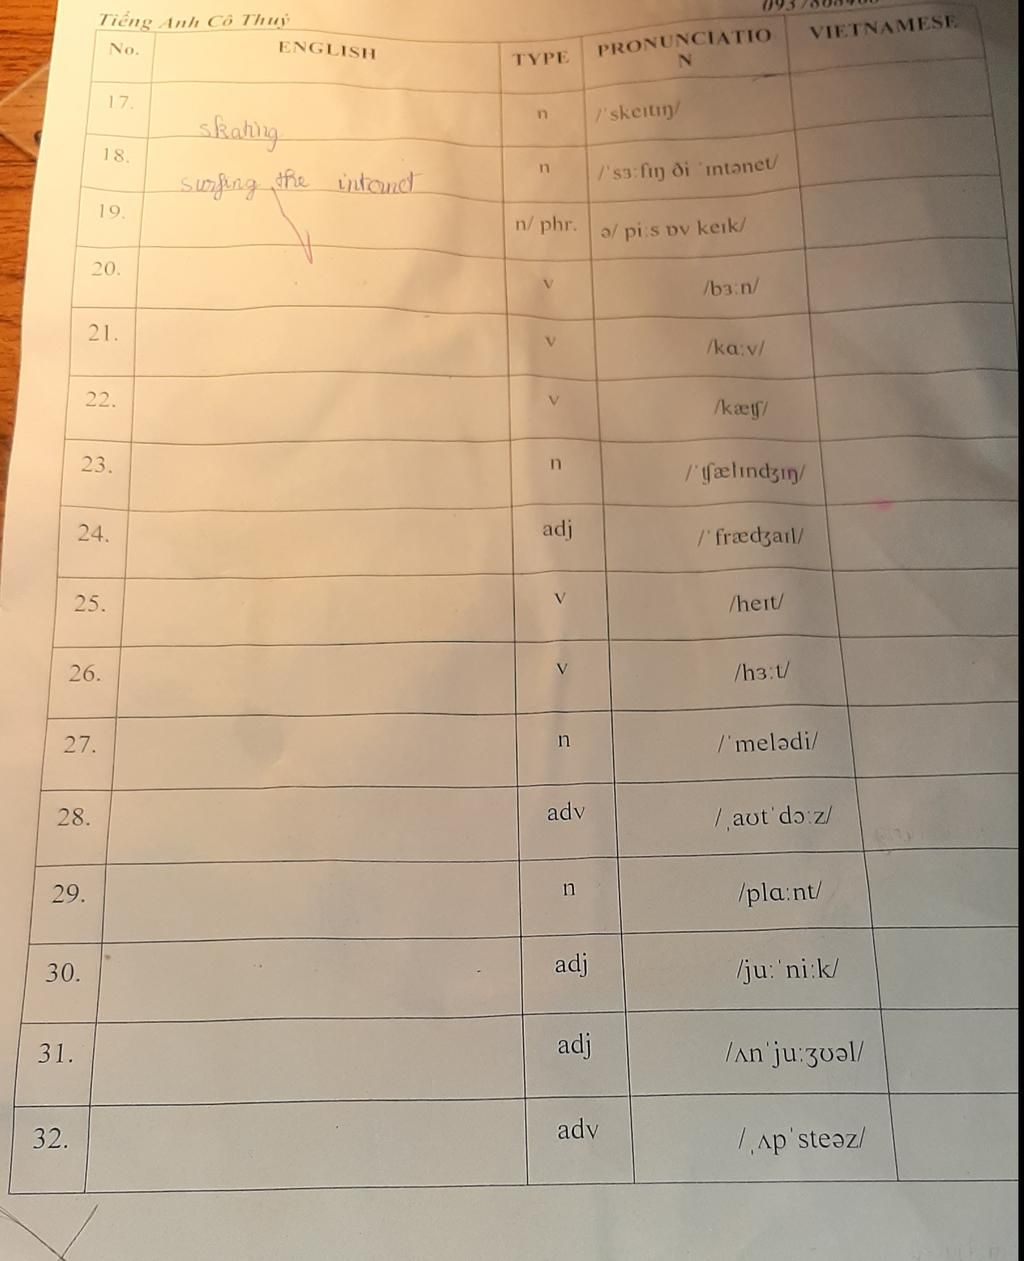 Tiếng Anh Cô Thuỷ
No. ENGLISH TYPE PRONUNCIATIO
N VIETNAMESE
17. skating n /ˈskeɪtɪŋ/
18. surfing the internet n /ˈsɜːfɪŋ ði ˈɪntənet/
19. n/ phr. ə/ piːs ɒv keɪk/
20. v /bɜːn/
21. v /kɑːv/
22. v /kæʧ/
23. n /ˈʧælɪndʒɪŋ/
24. adj /ˈfrædʒaɪl/
25. v /heɪt/
26. v /hɜːt/
27. n /ˈmelədi/
28. adv /ˌaʊtˈdɔːz/
29. n /plɑːnt/
30. adj /juːˈniːk/
31. adj /ʌnˈjuːʒʊəl/
32. adv /ˌʌpˈsteəz/